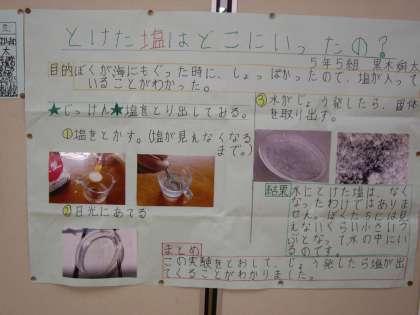 とけた塩はどこにいったの?
5年5組 黒木
目的 ぼくが海にもぐった時に、しょっぱかったので、塩が入って
いることがわかった。
★じっけん★塩をとり出してみる。
①塩をとかす。(塩が見えなくなる
まで。)
②日光にあてる
③水がじょう発したら、固体
を取り出す。
結果 水にとけた塩は、なく
なったわけではありま
せん。ぼくたちには見
えないくらい小さいつ
ぶとなって水の中にい
るのです。
まとめ
この実験をとおして、じょう発したら塩が出
てくることがわかりました。